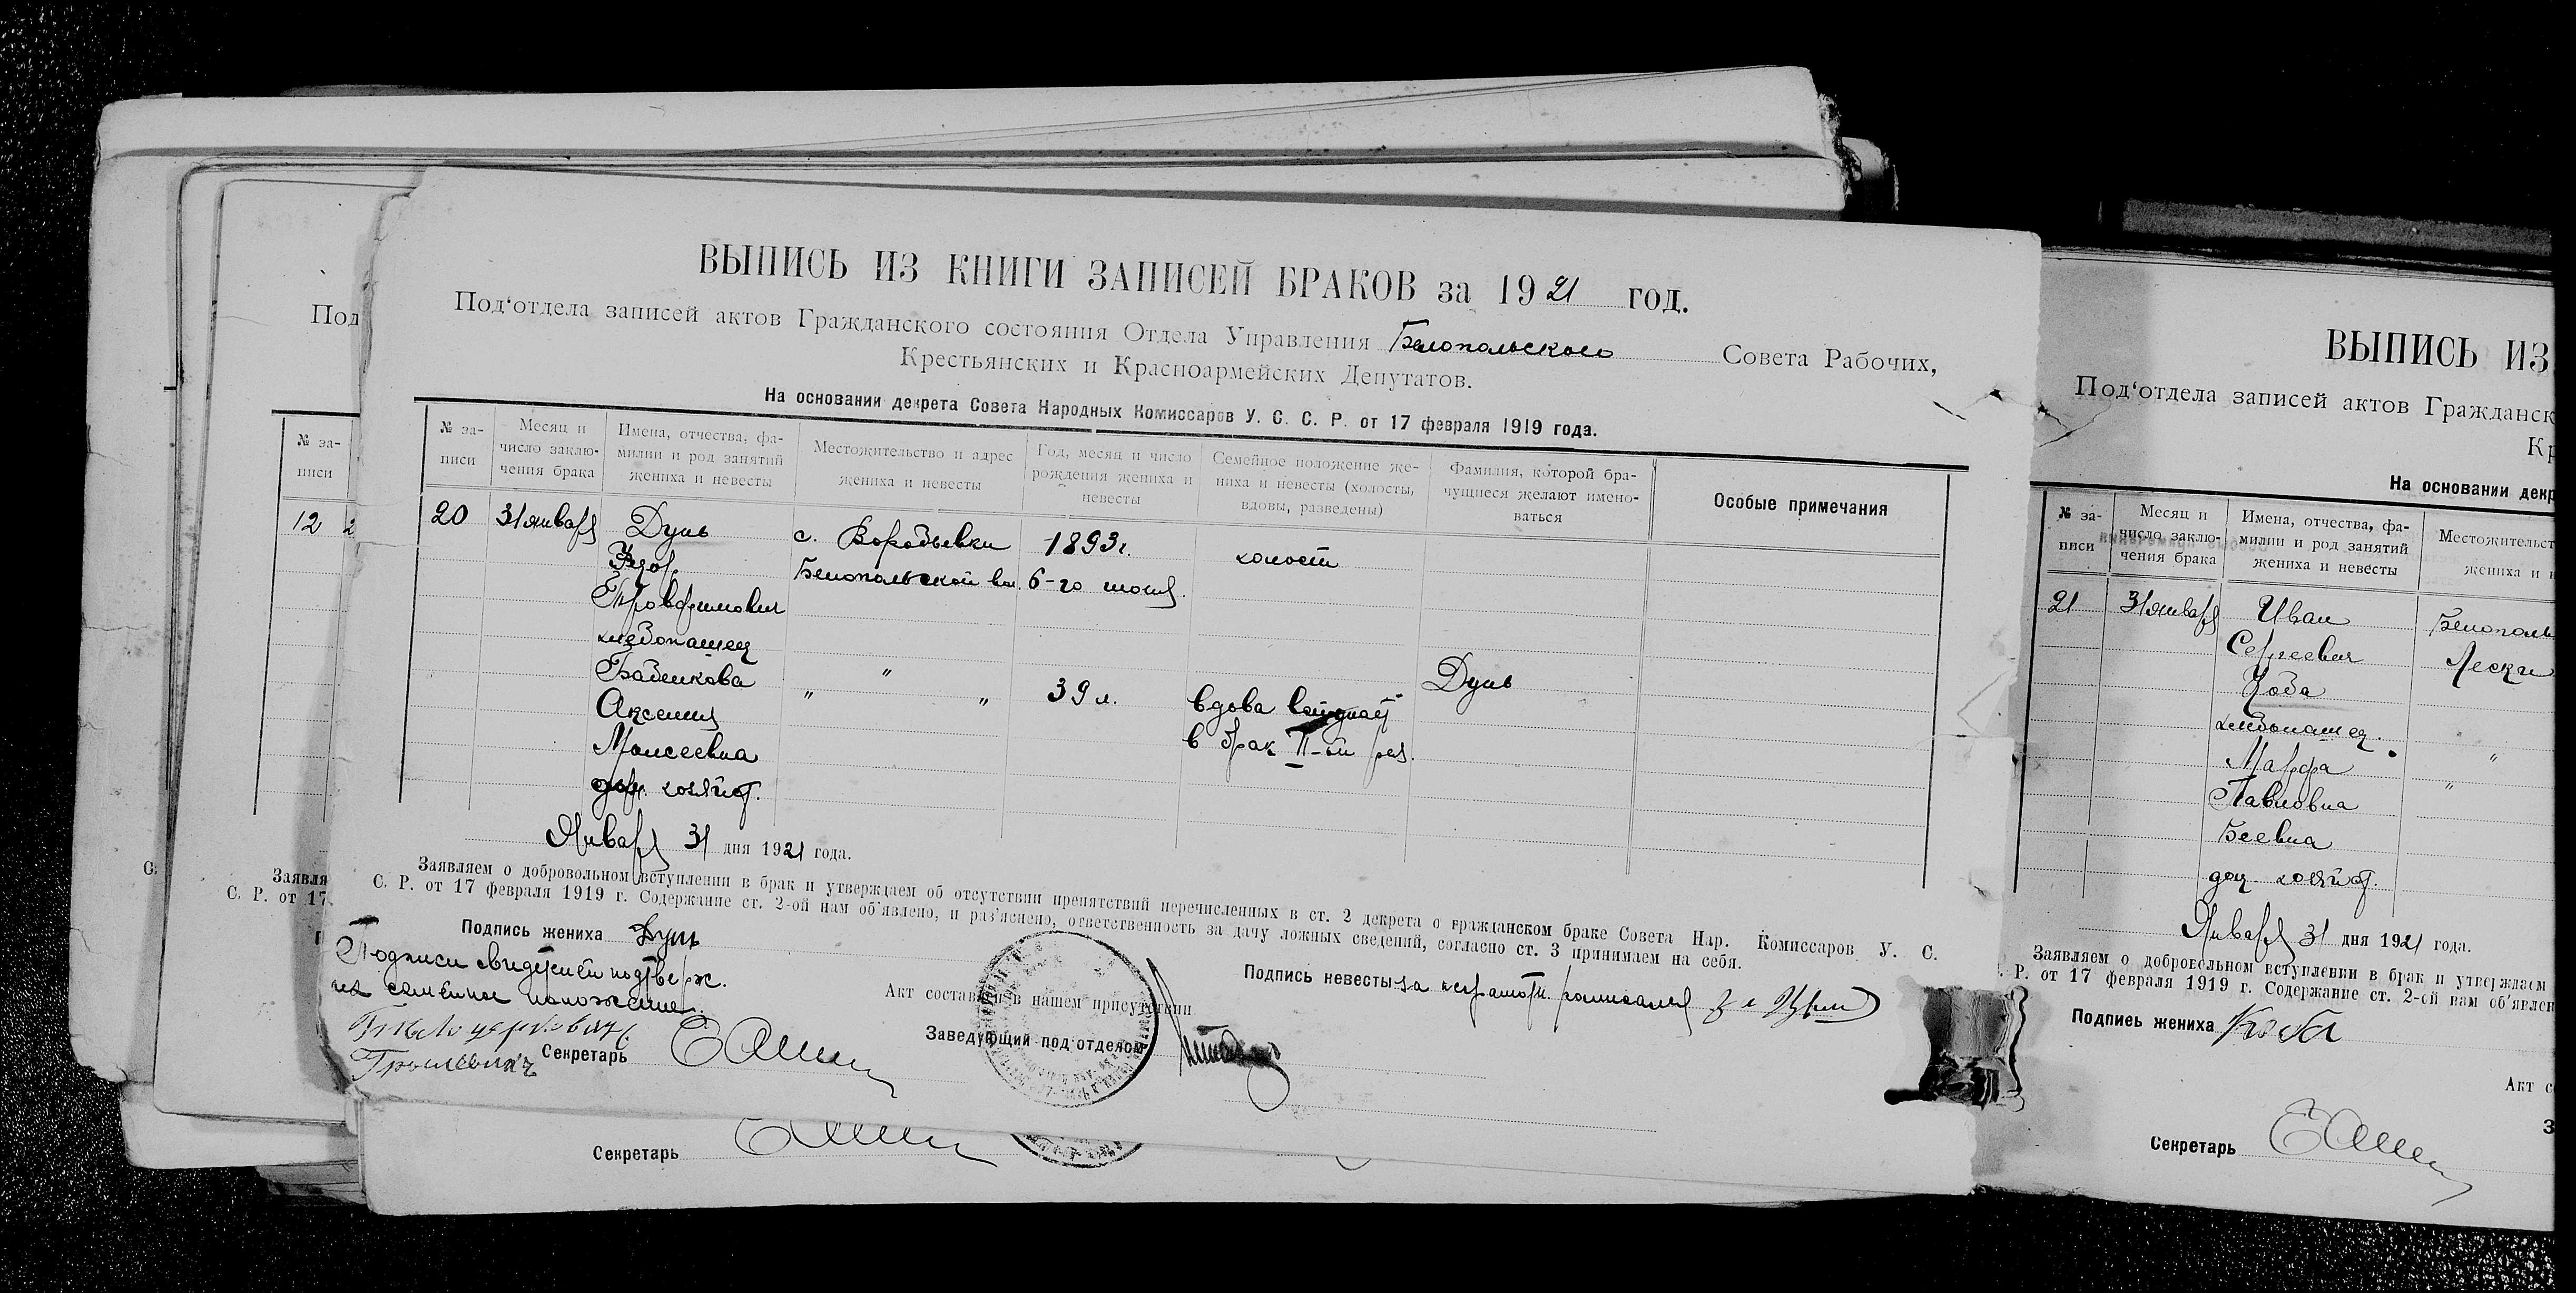 ВЫПИСЬ ИЗ КНИГИ ЗАПИСЕЙ БРАКОВ за 1921 год.
Под‘отдела записей актов Гражданского состояния Отдела Управления Белопольского Совета Рабочих,
Крестьянских и Красноармейских Депутатов.
На основании декрета Совета Народных Комиссаров У. С. С. Р. от 17 февраля 1919 года.
№ за-
писи
Месяц и
число заклю-
чения брака
Имена, отчества, фа-
милии и род занятий
жениха и невесты
Местожительство и адрес
жениха и невесты
Год, месяц и число
рождения жениха и
невесты
Семейное положение же-
ниха и невесты (холосты,
вдовы, разведены)
Фамилия, которой бра-
чущиеся желают имено-
ваться
Особые примечания
20 31 января Дунь с. Воробьевки 1893 г. холост
Федор Белопольской вол. 6-го июня.
Трофимович
хлебопашец
Бабенкова " Дунь
Аксения " " 39 л. вдова
Моисеевна в брак II-ой раз.
дом. хозяйст.
Января 31 дня 1921 года.
Заявляем о добровольном вступлении в брак и утверждаем об отсутствии препятствий перечисленных в ст. 2 декрета о гражданском браке Совета Нар. Комиссаров У. С.
С. Р. от 17 февраля 1919 г. Содержание ст. 2-ой нам об‘явлено, и раз‘яснено, ответственность за дачу ложных сведений, согласно ст. 3 принимаем на себя.
Подпись жениха Дунь
Подпись невесты за неграмотн. расписался
Подписи свидетелей подтверж.
их семейное положение.
Акт составлен в нашем присутствии
Заведующий под‘отделом
Секретарь
Секретарь
Под
№ за-
писи
12 2
Заявля
С. Р. от 17
С.
ВЫПИСЬ ИЗ
Под‘отдела записей актов Гражданск
Кр
На основании декр
№ за-
писи
Месяц и
число заклю-
чения брака
Имена, отчества, фа-
милии и род занятий
жениха и невесты
Местожительст
жениха и н
21 31 января Иван Белополь
Сергеевич Лески
Коба
хлебопашец.
Марфа "
Павловна "
Беевна
дом. хозяйст.
Января 31 дня 1921 года.
Заявляем о добровольном вступлении в брак и утверждаем
. Р. от 17 февраля 1919 г. Содержание ст. 2-ой нам об‘явлен
Подпись жениха Коба
Акт со
З
Секретарь